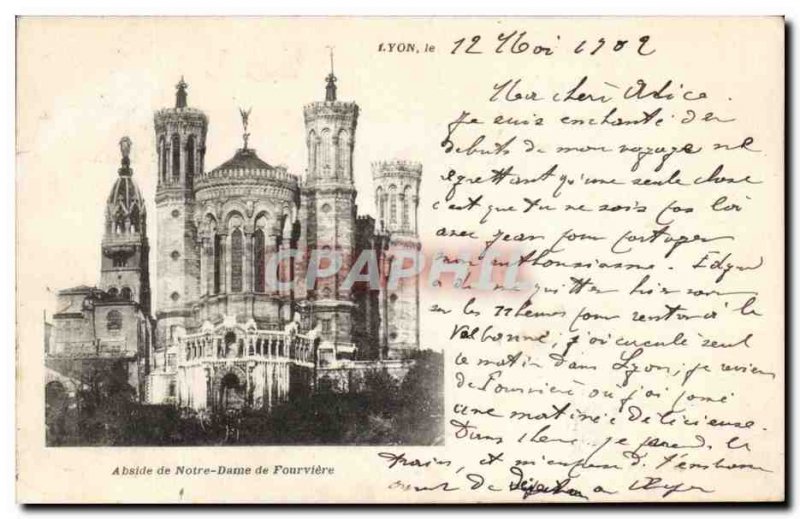 LYON, le 12 Mai 1902
Ma chère Alice.
Je suis enchanté des
débuts de mon voyage ne
regrettant qu'une seule chose
c'est que tu ne sois pas ici
avec Jean pour partager
mon enthousiasme. Edgar
a dû me quitter hier soir
sur les 11 heures pour rentrer à la
Valbonne, j'ai circulé seul
ce matin dans Lyon, je reviens
de Fourvière où j'ai passé
une matinée délicieuse.
Dans 1 heure je prends le
train, et
CPArama
Abside de Notre-Dame de Fourvière